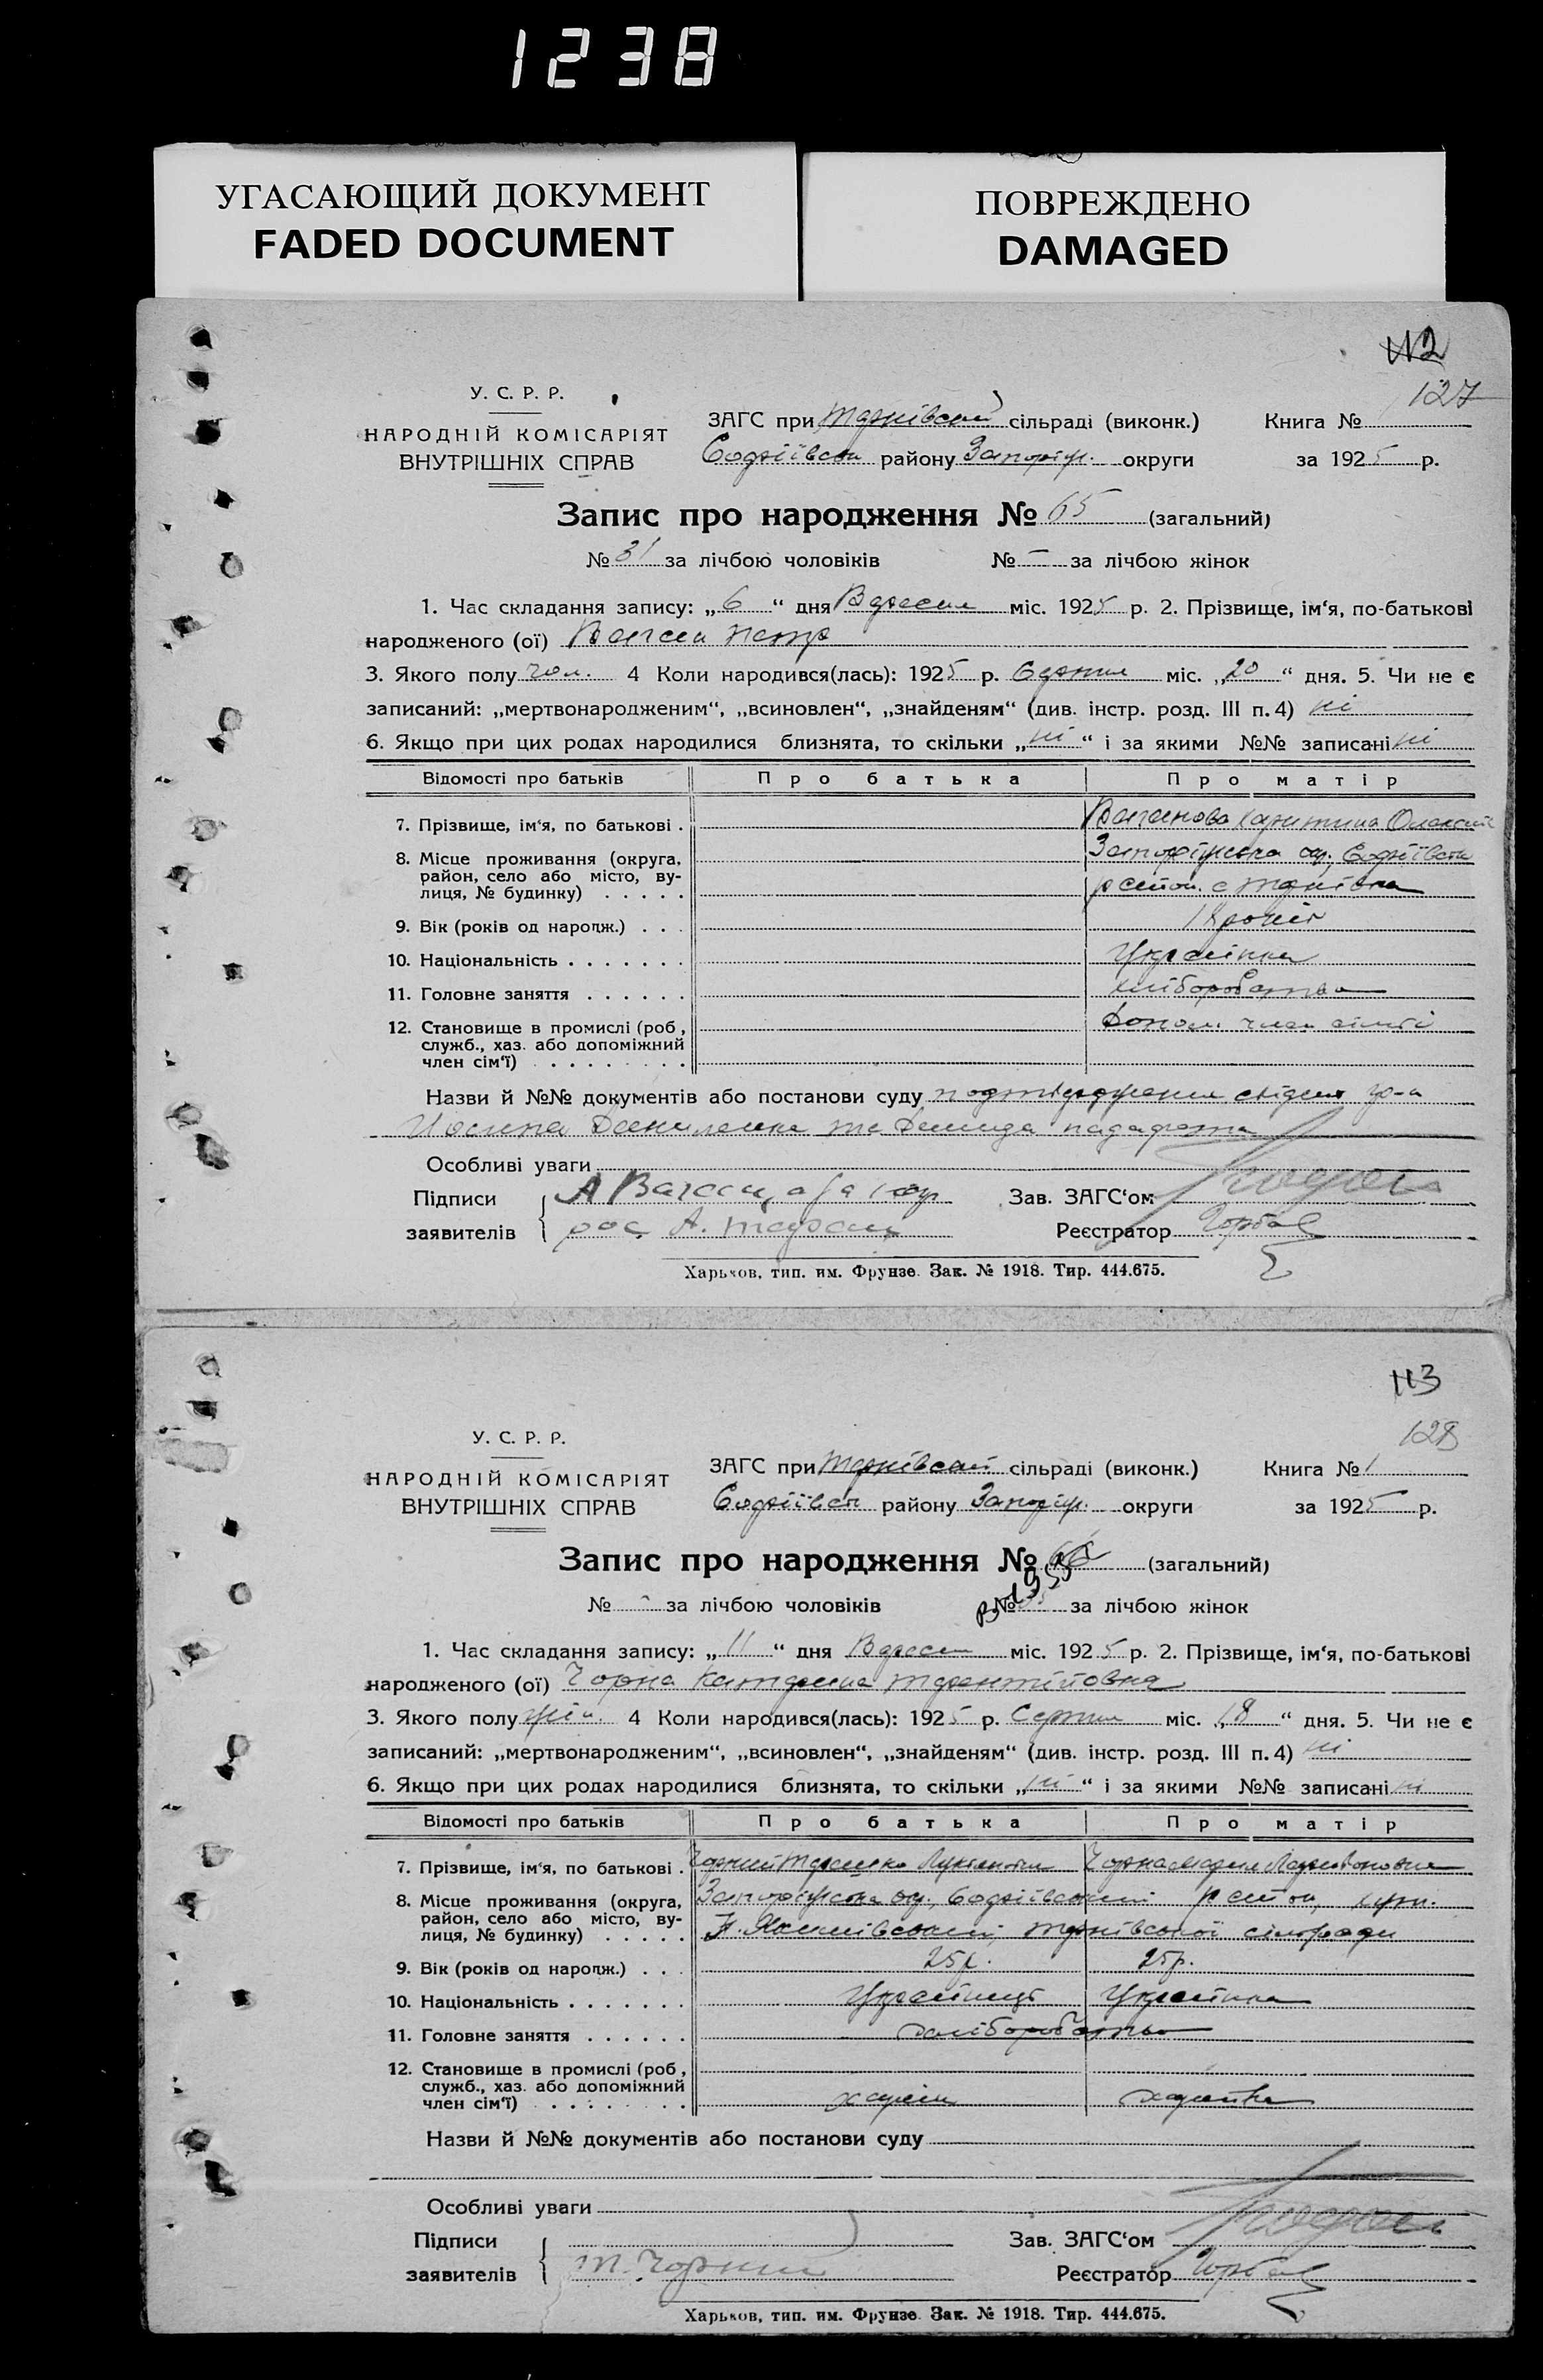 1238
УГАСАЮЩИЙ ДОКУМЕНТ
FADED DOCUMENT
ПОВРЕЖДЕНО
DAMAGED
112
127
У. С. Р. Р.
НАРОДНІЙ КОМІСАРІЯТ
ВНУТРІШНІХ СПРАВ
ЗАГС при сільраді (виконк.) Книга №
району округи за 1925 р.
Запис про народження № 65 (загальний)
№ 31 за лічбою чоловіків № — за лічбою жінок
1. Час складання запису: „6“ дня Вересня міс. 1925 р. 2. Прізвище, ім‘я, по-батькові
народженого (ої) Ваган Петр
3. Якого полу чол. 4 Коли народився(лась): 1925 р. Серпня міс. „20“ дня. 5. Чи не є
записаний: „мертвонародженим“, „всиновлен“, „знайденям“ (див. інстр. розд. III п. 4) ні
6. Якщо при цих родах народилися близнята, то скільки „ні“ і за якими №№ записані ні
Відомості про батьків Про батька Про матір
7. Прізвище, ім‘я, по батькові .
8. Місце проживання (округа, район, село або місто, вулиця, № будинку) . . . . .
9. Вік (років од народж.) . . . 18 років
10. Національність . . . . . . . Українка
11. Головне заняття . . . . . . хліборобство
12. Становище в промислі (роб, служб., хаз. або допоміжний член сім‘ї) . . . . . . . . допом. член сім‘ї
Назви й №№ документів або постанови суду
Особливі уваги
Підписи Зав. ЗАГС‘ом
заявителів Реєстратор
Харьков, тип. им. Фрунзе. Зак. № 1918. Тир. 444.675.
113
128
У. С. Р. Р.
НАРОДНІЙ КОМІСАРІЯТ
ВНУТРІШНІХ СПРАВ
ЗАГС при сільраді (виконк.) Книга № 1
району округи за 1925 р.
Запис про народження № 66 (загальний)
№ - за лічбою чоловіків № за лічбою жінок
1. Час складання запису: „11“ дня Вересня міс. 1925 р. 2. Прізвище, ім‘я, по-батькові
народженого (ої) Чорна Катерина Терентійовна
3. Якого полу жін. 4 Коли народився(лась): 1925 р. Серпня міс. „18“ дня. 5. Чи не є
записаний: „мертвонародженим“, „всиновлен“, „знайденям“ (див. інстр. розд. III п. 4) ні
6. Якщо при цих родах народилися близнята, то скільки „ні“ і за якими №№ записані ні
Відомості про батьків Про батька Про матір
7. Прізвище, ім‘я, по батькові . Чорний Чорна
8. Місце проживання (округа, район, село або місто, вулиця, № будинку) . . . . .
9. Вік (років од народж.) . . . 25р. 25р.
10. Національність . . . . . . . Українець Українка
11. Головне заняття . . . . . . хліборобство
12. Становище в промислі (роб, служб., хаз. або допоміжний член сім‘ї) . . . . . . . . хазяїн хазяйка
Назви й №№ документів або постанови суду
Особливі уваги
Підписи Зав. ЗАГС‘ом
заявителів Т. Чорний Реєстратор
Харьков, тип. им. Фрунзе. Зак. № 1918. Тир. 444.675.